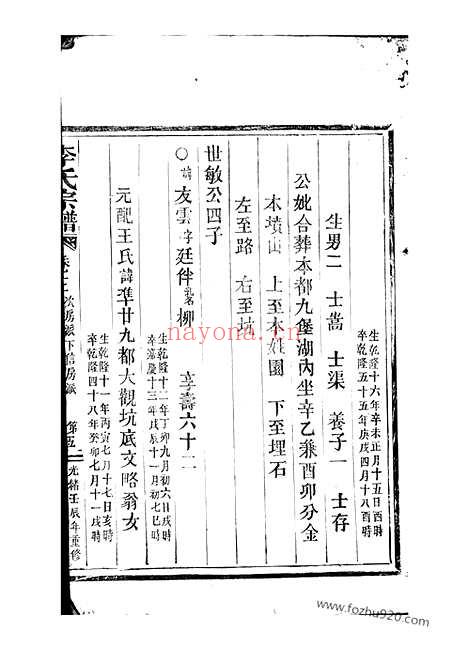 生乾隆十六年辛未正月十五日酉時
卒乾隆五十五年庚戌四月十八酉時
生男二 士嵩 士渠 養子一 士存
公妣合葬本都九堡湖內坐辛乙兼酉卯分金
木墳山 上至本姓園 下至埋石
左至路 右至坑
世敏公四子
○諱友雲字廷伴乳名柳 享壽六十二
生乾隆十二年丁卯九月初六日戌時
卒嘉慶十三年戊辰十一月初七巳時
元配王氏諱準廿九都大觀坑底文略翁女
生乾隆十一年丙寅七月十七日亥時
卒乾隆四十八年癸卯七月十一戌時
李氏宗譜 卷之二 次房派下信房派 第五 光緒壬辰年重修
nayona.cn
www.fozhu920.com